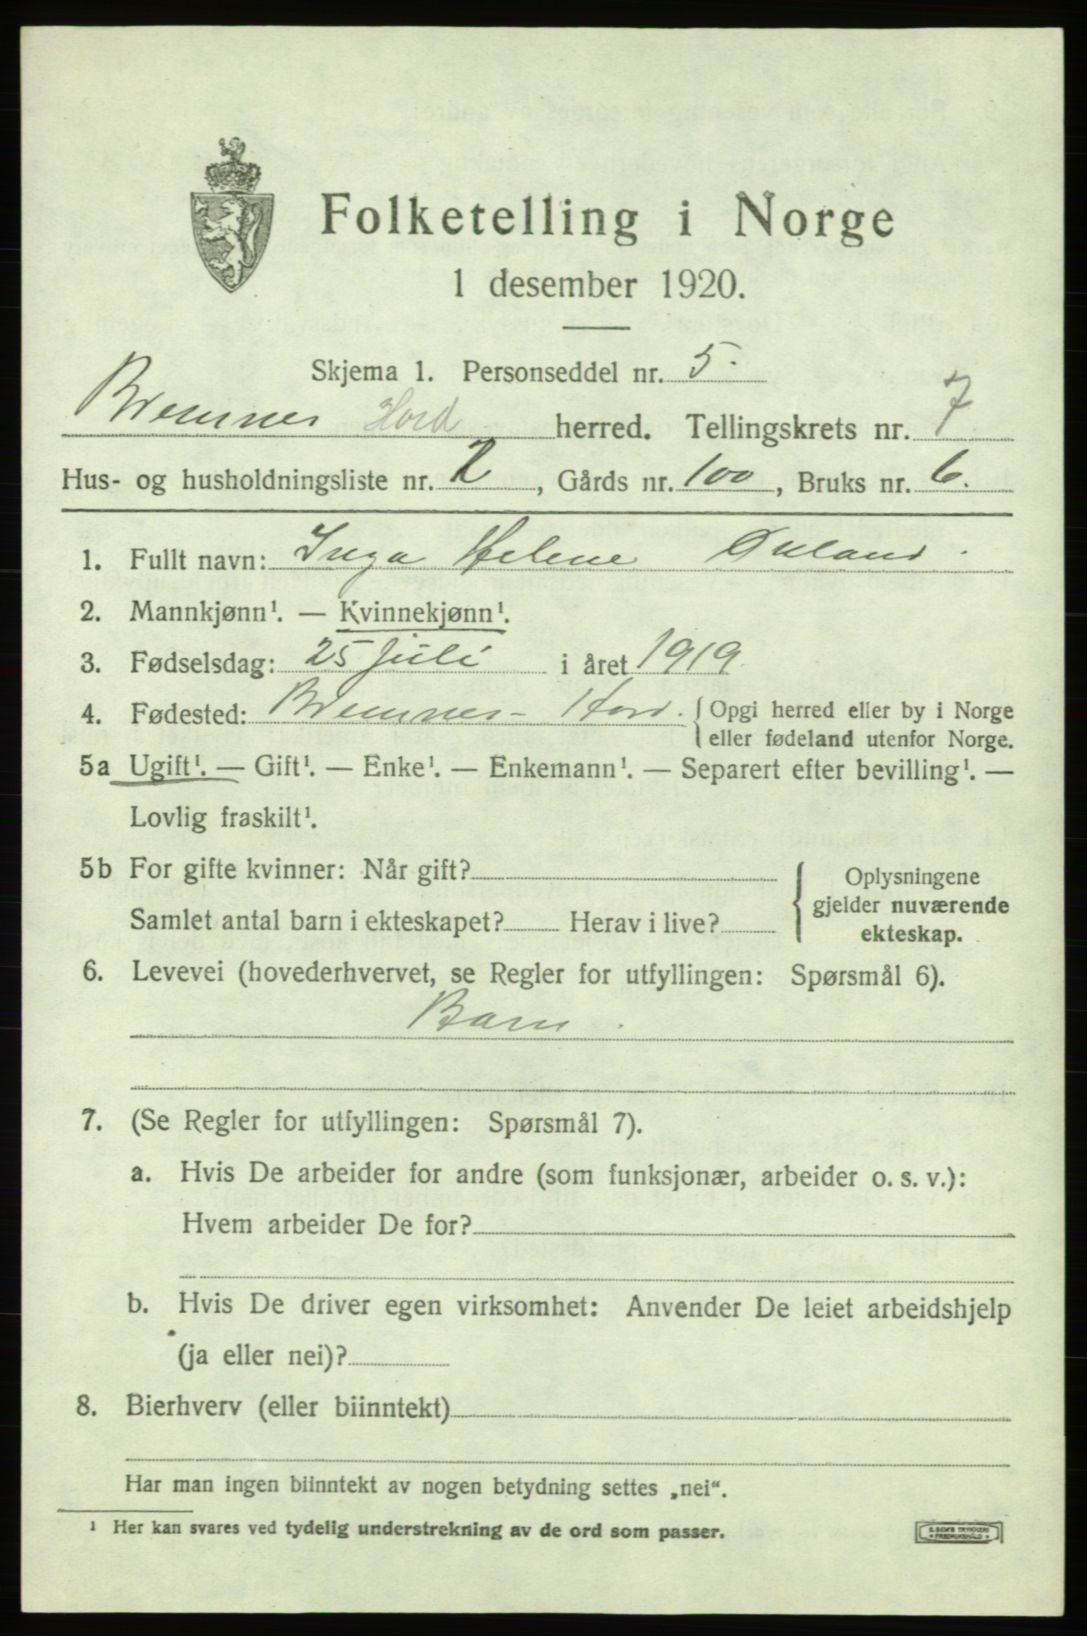 Folketelling i Norge
1 desember 1920.
Skjema 1. Personseddel nr. 5.
Bremnes Hord herred. Tellingskrets nr. 7
Hus- og husholdningsliste nr. 2, Gårds nr. 100, Bruks nr. 6.
1. Fullt navn: Inga Helene
2. Mannkjønn¹. — Kvinnekjønn¹.
3. Fødselsdag: 25 juli i året 1919
4. Fødested: Bremnes - Hord. { Opgi herred eller by i Norge
eller fødeland utenfor Norge.
5a Ugift¹. — Gift¹. — Enke¹. — Enkemann¹. — Separert efter bevilling¹. —
Lovlig fraskilt¹.
5b For gifte kvinner: Når gift?
Samlet antal barn i ekteskapet? Herav i live?
{ Oplysningene
gjelder nuværende
ekteskap.
6. Levevei (hovederhvervet, se Regler for utfyllingen: Spørsmål 6).
Barn.
7. (Se Regler for utfyllingen: Spørsmål 7).
a. Hvis De arbeider for andre (som funksjonær, arbeider o. s. v.):
Hvem arbeider De for?
b. Hvis De driver egen virksomhet: Anvender De leiet arbeidshjelp
(ja eller nei)?
8. Bierhverv (eller biinntekt)
Har man ingen biinntekt av nogen betydning settes „nei“.
¹ Her kan svares ved tydelig understrekning av de ord som passer.